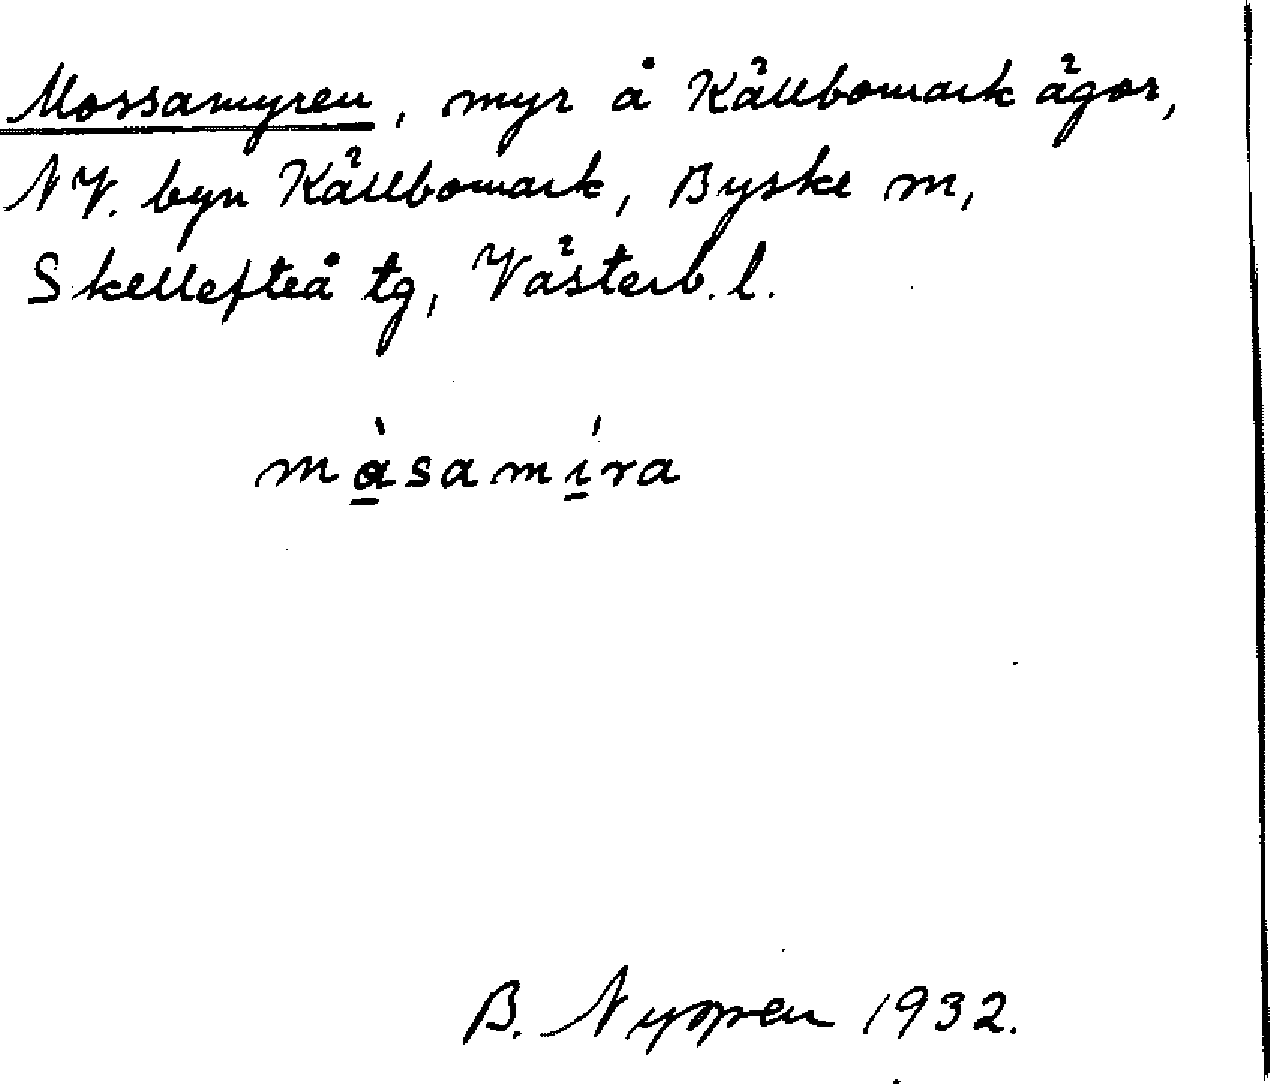 Mossamyren, myr å Källbomark ägor,
NV. byn Källbomark, Byske sn,
Skellefteå tg, Västerb. l.
màsamíra
B. Nyppen 1932.